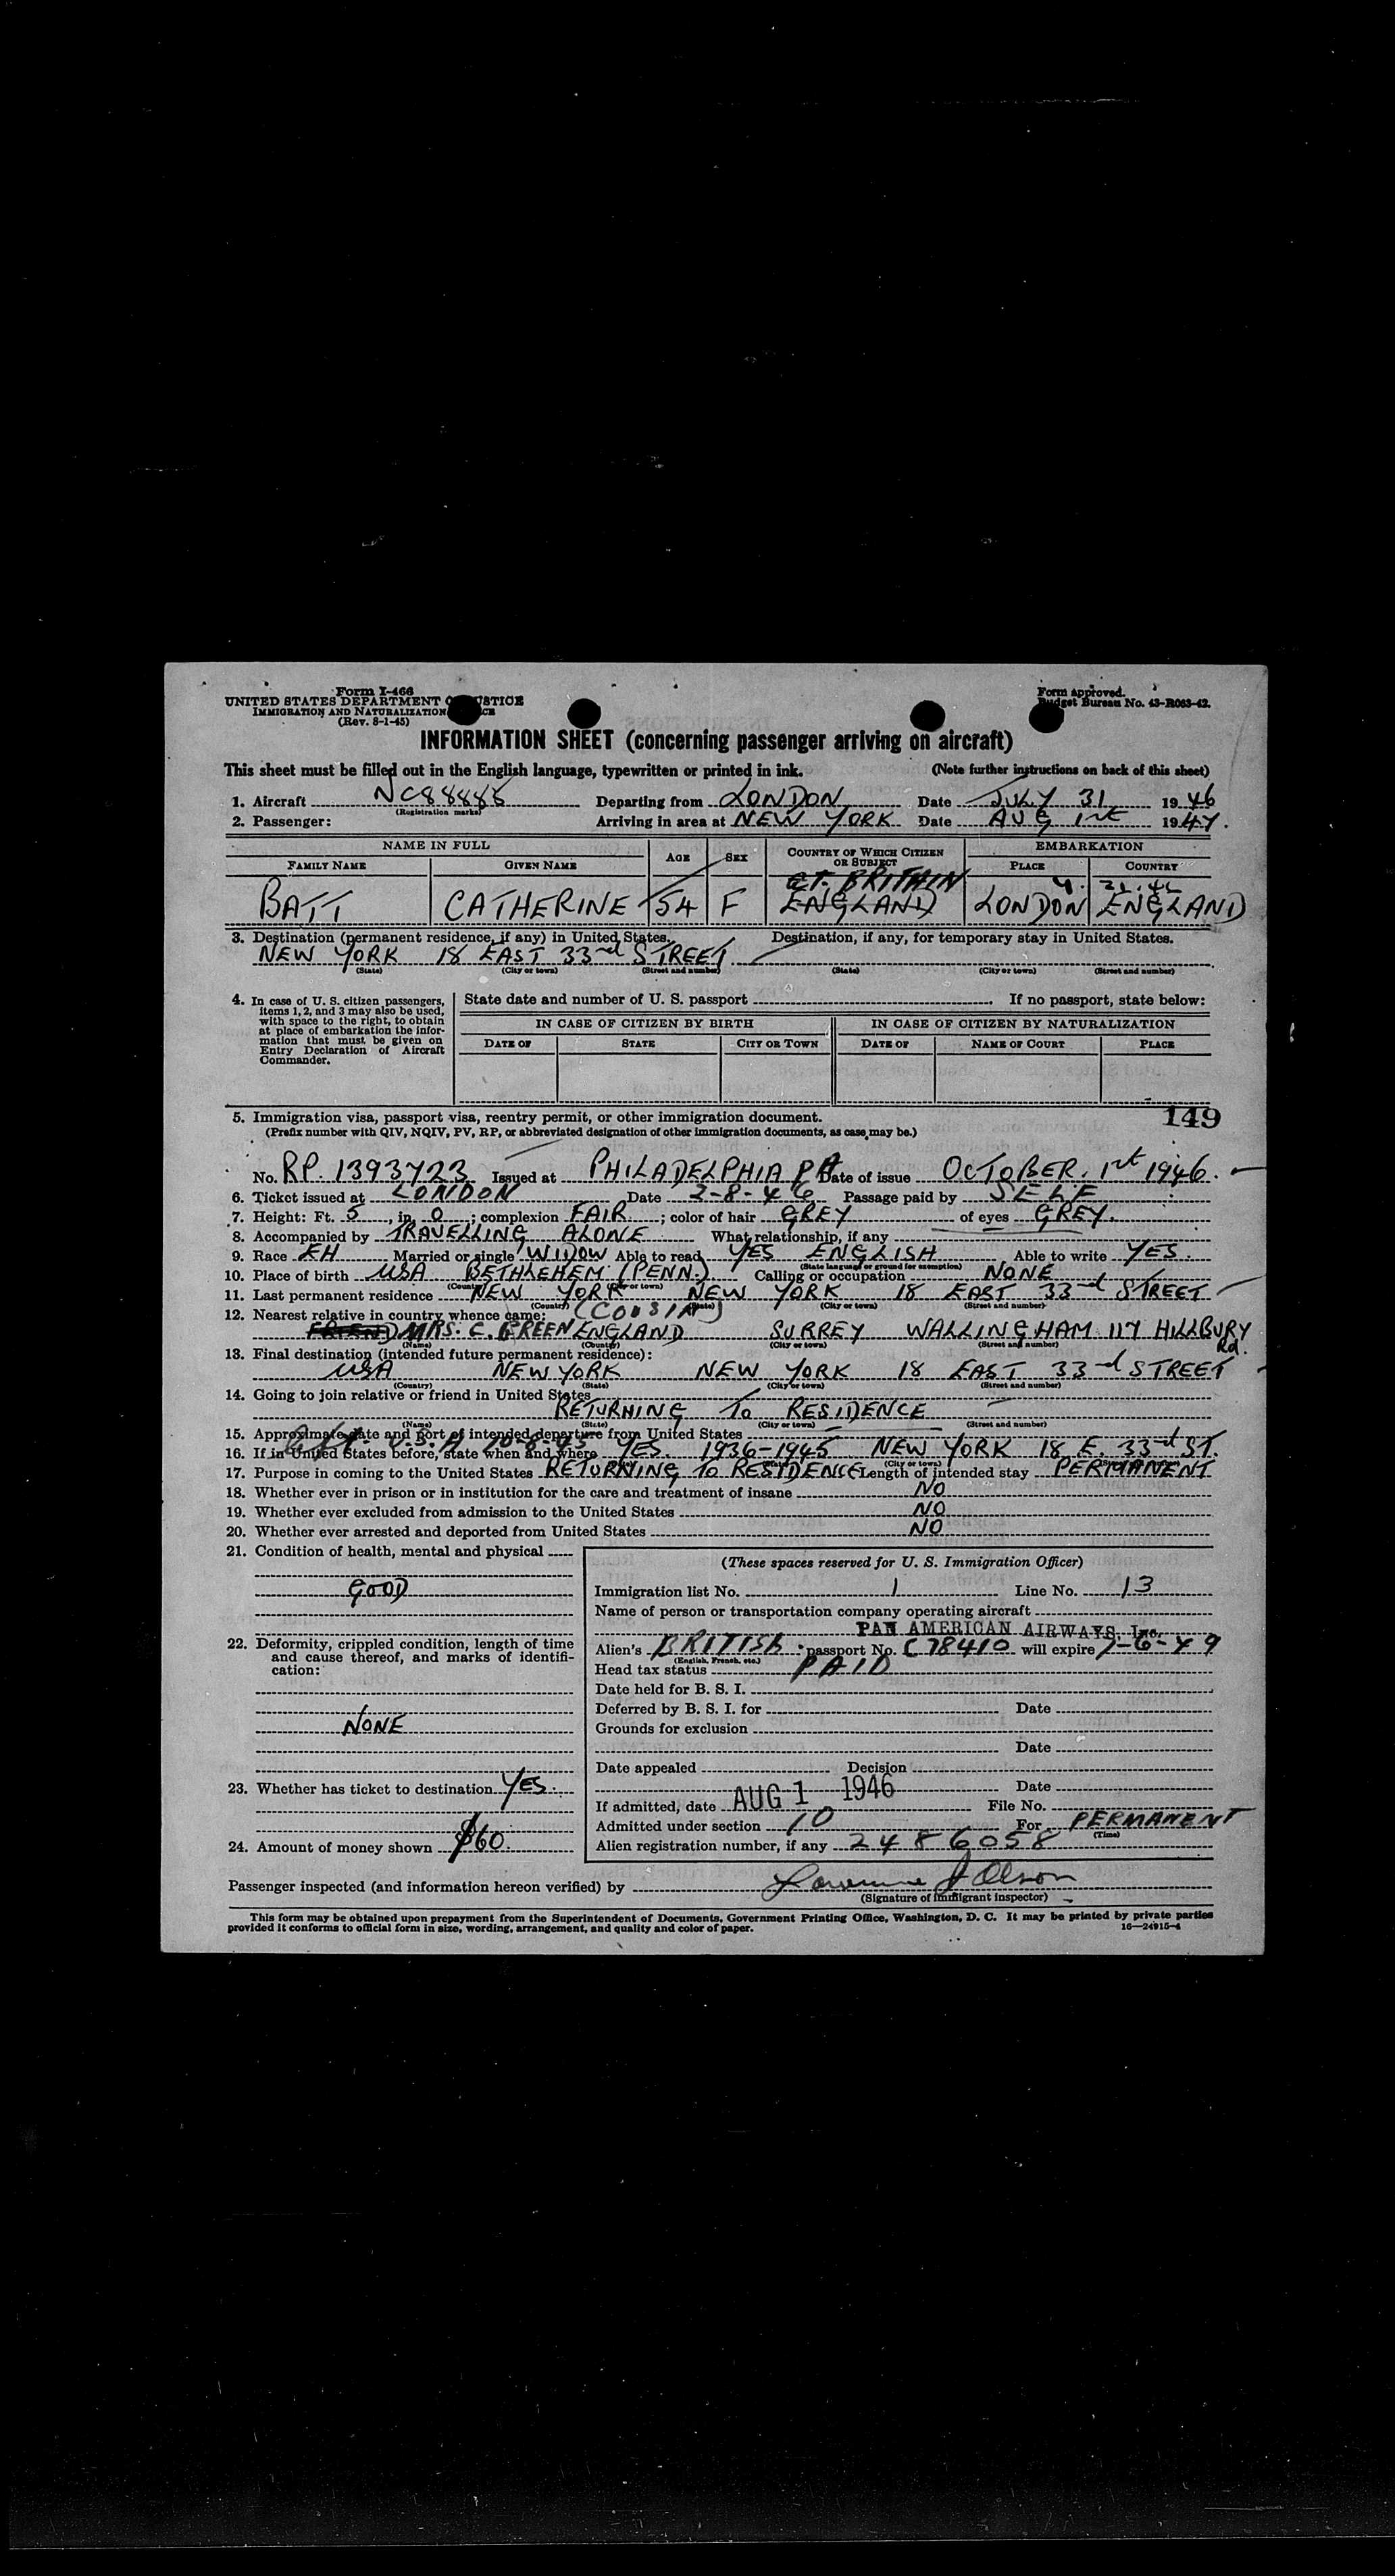 Form I-466
UNITED STATES DEPARTMENT OF JUSTICE
IMMIGRATION AND NATURALIZATION
(Rev. 8-1-45)
Form approved.
Budget Bureau No. 43-R063-42.
INFORMATION SHEET (concerning passenger arriving on aircraft)
This sheet must be filled out in the English language, typewritten or printed in ink. (Note further instructions on back of this sheet)
1. Aircraft NC88888 Departing from LONDON Date JULY 31 1946
(Registration marks)
2. Passenger: Arriving in area at NEW YORK Date AUG 1st 1947.
NAME IN FULL AGE SEX COUNTRY OF WHICH CITIZEN OR SUBJECT EMBARKATION
FAMILY NAME GIVEN NAME PLACE COUNTRY
GT. BRITAIN
BATT CATHERINE 54 F ENGLAND LONDON ENGLAND
3. Destination (permanent residence, if any) in United States. Destination, if any, for temporary stay in United States.
NEW YORK 18 EAST 33rd STREET
(State) (City or town) (Street and number) (State) (City or town) (Street and number)
4. In case of U. S. citizen passengers, items 1, 2, and 3 may also be used, with space to the right, to obtain at place of embarkation the information that must be given on Entry Declaration of Aircraft Commander.
State date and number of U. S. passport If no passport, state below:
IN CASE OF CITIZEN BY BIRTH IN CASE OF CITIZEN BY NATURALIZATION
DATE OF STATE CITY OR TOWN DATE OF NAME OF COURT PLACE
5. Immigration visa, passport visa, reentry permit, or other immigration document. 149
(Prefix number with QIV, NQIV, PV, RP, or abbreviated designation of other immigration documents, as case may be.)
No. RP. 1393723 Issued at PHILADELPHIA PA Date of issue OCTOBER. 1st 1946.
6. Ticket issued at LONDON Date 2-8-46 Passage paid by SELF
7. Height: Ft. 5, in. 0; complexion FAIR; color of hair GREY of eyes GREY.
8. Accompanied by TRAVELLING ALONE What relationship, if any
9. Race EH Married or single WIDOW Able to read YES ENGLISH Able to write YES.
(State language or ground for exemption)
10. Place of birth USA BETHLEHEM (PENN.) Calling or occupation NONE
(Country) (City or town)
11. Last permanent residence NEW YORK NEW YORK 18 EAST 33rd STREET
(Country) (State) (City or town) (Street and number)
12. Nearest relative in country whence came: (COUSIN)
(FRIEND) MRS. C. GREEN ENGLAND SURREY WALLINGHAM 117 HILLBURY Rd.
(Name) (Country) (City or town) (Street and number)
13. Final destination (intended future permanent residence):
USA NEW YORK NEW YORK 18 EAST 33rd STREET
(Country) (State) (City or town) (Street and number)
14. Going to join relative or friend in United States
RETURNING TO RESIDENCE
(Name) (State) (City or town) (Street and number)
15. Approximate date and port of intended departure from United States
16. If in United States before, state when and where YES. 1936-1945 NEW YORK 18 E. 33rd ST.
(City or town)
17. Purpose in coming to the United States RETURNING TO RESIDENCE Length of intended stay PERMANENT
18. Whether ever in prison or in institution for the care and treatment of insane NO
19. Whether ever excluded from admission to the United States NO
20. Whether ever arrested and deported from United States NO
21. Condition of health, mental and physical
GOOD
22. Deformity, crippled condition, length of time and cause thereof, and marks of identification:
NONE
23. Whether has ticket to destination YES.
24. Amount of money shown $60.
(These spaces reserved for U. S. Immigration Officer)
Immigration list No. 1 Line No. 13
Name of person or transportation company operating aircraft
PAN AMERICAN AIRWAYS, Inc.
Alien's BRITISH passport No. C 78410 will expire 7-6-49
(English, French, etc.)
Head tax status PAID
Date held for B. S. I.
Deferred by B. S. I. for Date
Grounds for exclusion
Date
Date appealed Decision
Date
If admitted, date AUG 1 1946 File No.
Admitted under section 10 For PERMANENT
(Time)
Alien registration number, if any 2486058
Passenger inspected (and information hereon verified) by Lawrence J Olson
(Signature of immigrant inspector)
This form may be obtained upon prepayment from the Superintendent of Documents, Government Printing Office, Washington, D. C. It may be printed by private parties
provided it conforms to official form in size, wording, arrangement, and quality and color of paper. 16—24915-4